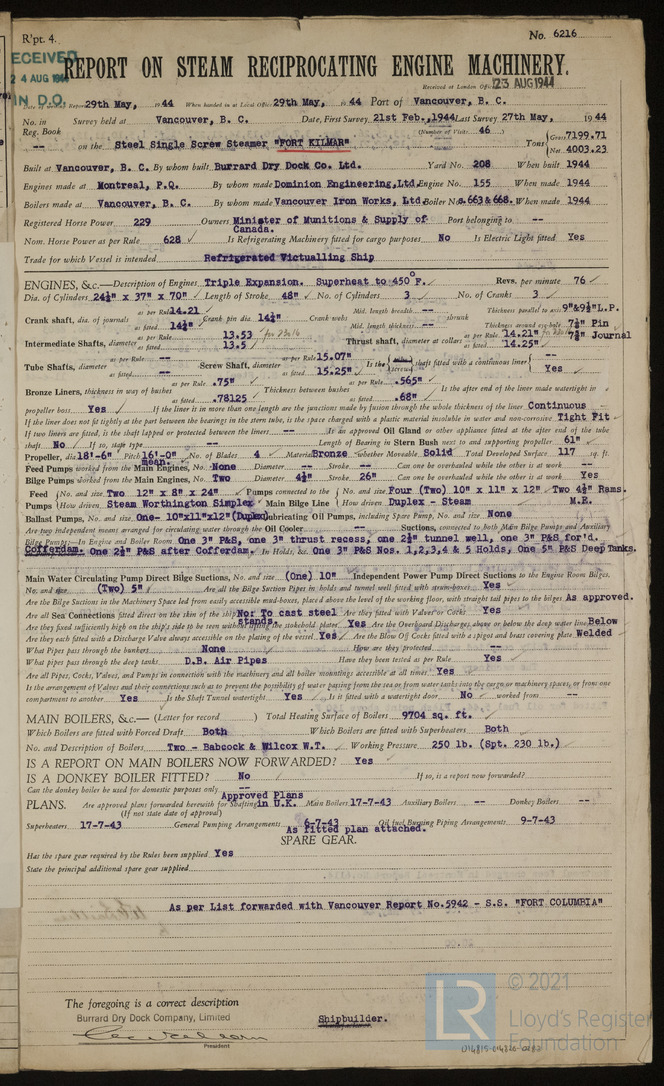 R'pt. 4.
No. 6216
RECEIVED
24 AUG 1944
IN D.O.
REPORT ON STEAM RECIPROCATING ENGINE MACHINERY.
Received at London Office 23 AUG 1944
Date of writing Report 29th May, 1944 When handed in at Local Office 29th May, 1944 Port of Vancouver, B. C.
No. in Survey held at Vancouver, B. C. Date, First Survey 21st Feb., 1944 Last Survey 27th May, 1944
Reg. Book (Number of Visits 46)
-- on the Steel Single Screw Steamer "FORT KILMAR" Tons Gross 7199.71 Net 4003.23
Built at Vancouver, B. C. By whom built Burrard Dry Dock Co. Ltd. Yard No. 208 When built 1944
Engines made at Montreal, P.Q. By whom made Dominion Engineering, Ltd. Engine No. 155 When made 1944
Boilers made at Vancouver, B. C. By whom made Vancouver Iron Works, Ltd. Boiler Nos. 663 & 668. When made 1944
Registered Horse Power 229 Owners Minister of Munitions & Supply of Canada. Port belonging to --
Nom. Horse Power as per Rule 628 Is Refrigerating Machinery fitted for cargo purposes No Is Electric Light fitted Yes
Trade for which Vessel is intended Refrigerated Victualling Ship
ENGINES, &c.—Description of Engines Triple Expansion. Superheat to 450°F. Revs. per minute 76
Dia. of Cylinders 24½" x 37" x 70" Length of Stroke 48" No. of Cylinders 3 No. of Cranks 3
Crank shaft, dia. of journals as per Rule 14.21 as fitted 14¼" Crank pin dia. 14¼" Crank webs Mid. length breadth -- Mid. length thickness -- shrunk Thickness parallel to axis 9"&9½"L.P. Thickness around eye-hole 7½" Pin 7¾" Journal
Intermediate Shafts, diameter as per Rule 13.53 as fitted 13.5 Thrust shaft, diameter at collars as per Rule 14.21" as fitted 14.25"
Tube Shafts, diameter as per Rule -- as fitted -- Screw Shaft, diameter as per Rule 15.07" as fitted 15.25" Is the screw shaft fitted with a continuous liner Yes
Bronze Liners, thickness in way of bushes as per Rule .75" as fitted .78125 Thickness between bushes as per Rule .565" as fitted .68" Is the after end of the liner made watertight in
propeller boss Yes If the liner is in more than one length are the junctions made by fusion through the whole thickness of the liner Continuous
If the liner does not fit tightly at the part between the bearings in the stern tube, is the space charged with a plastic material insoluble in water and non-corrosive Tight Fit
If two liners are fitted, is the shaft lapped or protected between the liners -- Is an approved Oil Gland or other appliance fitted at the after end of the tube
shaft No If so, state type -- Length of Bearing in Stern Bush next to and supporting propeller 61"
Propeller, dia. 18'-6" Pitch 16'-0" mean. No. of Blades 4 Material Bronze whether Moveable Solid Total Developed Surface 117 sq. ft.
Feed Pumps worked from the Main Engines, No. None Diameter -- Stroke -- Can one be overhauled while the other is at work --
Bilge Pumps worked from the Main Engines, No. Two Diameter 4½" Stroke 26" Can one be overhauled while the other is at work Yes
Feed Pumps No. and size Two 12" x 8" x 24" Pumps connected to the Main Bilge Line No. and size Four (Two) 10" x 11" x 12" Two 4½" Rams.
How driven Steam Worthington Simplex How driven Duplex - Steam M.E.
Ballast Pumps, No. and size One- 10"x11"x12"(Duplex) Lubricating Oil Pumps, including Spare Pump, No. and size None
Are two independent means arranged for circulating water through the Oil Cooler -- Suctions, connected to both Main Bilge Pumps and Auxiliary
Bilge Pumps—In Engine and Boiler Room One 3" P&S, one 3" thrust recess, one 2½" tunnel well, one 3" P&S for'd.
Cofferdam. One 2½" P&S after Cofferdam. In Holds, &c. One 3" P&S Nos. 1,2,3,4 & 5 Holds, One 5" P&S Deep Tanks.
Main Water Circulating Pump Direct Bilge Suctions, No. and size (One) 10" Independent Power Pump Direct Suctions to the Engine Room Bilges,
No. and size (Two) 5" Are all the Bilge Suction Pipes in holds and tunnel well fitted with strum-boxes Yes
Are the Bilge Suctions in the Machinery Space led from easily accessible mud-boxes, placed above the level of the working floor, with straight tail pipes to the bilges As approved.
Are all Sea Connections fitted direct on the skin of the ship No: To cast steel stands. Are they fitted with Valves or Cocks Yes
Are they fixed sufficiently high on the ship's side to be seen without lifting the stokehold plates Yes Are the Overboard Discharges above or below the deep water line Below
Are they each fitted with a Discharge Valve always accessible on the plating of the vessel Yes Are the Blow Off Cocks fitted with a spigot and brass covering plate Welded
What Pipes pass through the bunkers None How are they protected --
What pipes pass through the deep tanks D.B. Air Pipes Have they been tested as per Rule Yes
Are all Pipes, Cocks, Valves, and Pumps in connection with the machinery and all boiler mountings accessible at all times Yes
Is the arrangement of Valves and their connections such as to prevent the possibility of water passing from the sea or from water tanks into the cargo or machinery spaces, or from one
compartment to another Yes Is the Shaft Tunnel watertight Yes Is it fitted with a watertight door No worked from --
MAIN BOILERS, &c.— (Letter for record ) Total Heating Surface of Boilers 9704 sq. ft.
Which Boilers are fitted with Forced Draft Both Which Boilers are fitted with Superheaters Both
No. and Description of Boilers Two - Babcock & Wilcox W.T. Working Pressure 250 lb. (Spt. 230 lb.)
IS A REPORT ON MAIN BOILERS NOW FORWARDED? Yes
IS A DONKEY BOILER FITTED? No If so, is a report now forwarded?
Can the donkey boiler be used for domestic purposes only --
PLANS. Are approved plans forwarded herewith for Shafting Approved Plans in U.K. Main Boilers 17-7-43 Auxiliary Boilers -- Donkey Boilers --
(If not state date of approval)
Superheaters 17-7-43 General Pumping Arrangements 6-7-43 Oil fuel Burning Piping Arrangements 9-7-43
As fitted plan attached.
SPARE GEAR.
Has the spare gear required by the Rules been supplied Yes
State the principal additional spare gear supplied
As per List forwarded with Vancouver Report No. 5942 - S.S. "FORT COLUMBIA"
The foregoing is a correct description
Burrard Dry Dock Company, Limited Shipbuilder.
President
© 2021
LR
Lloyd's Register
Foundation